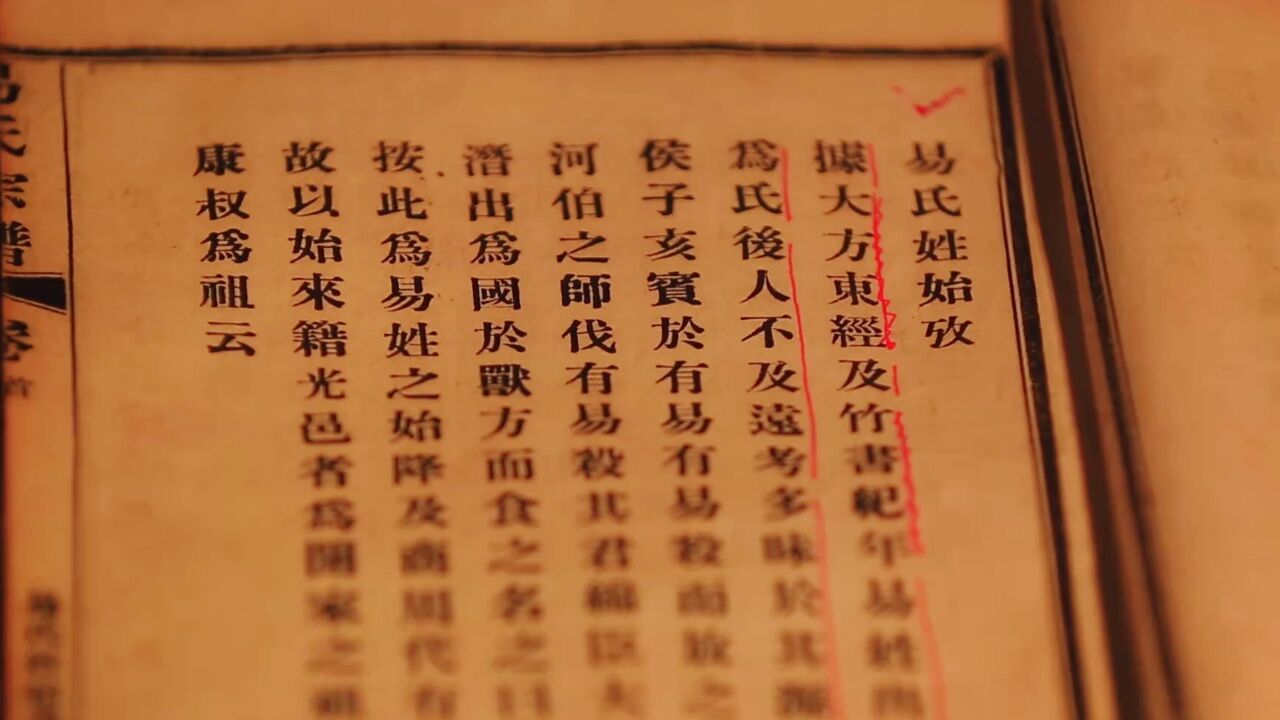 易氏姓始攷
據大方東經及竹書紀年易姓
為氏後人不及遠考多昧於其
侯子亥賓於有易有易殺而放之
河伯之師伐有易殺其君綿臣
潛出為國於獸方而食之名之曰
按此為易姓之始降及商周代有
故以始來籍光邑者為開家之祖
康叔為祖云
易氏宗譜
卷首